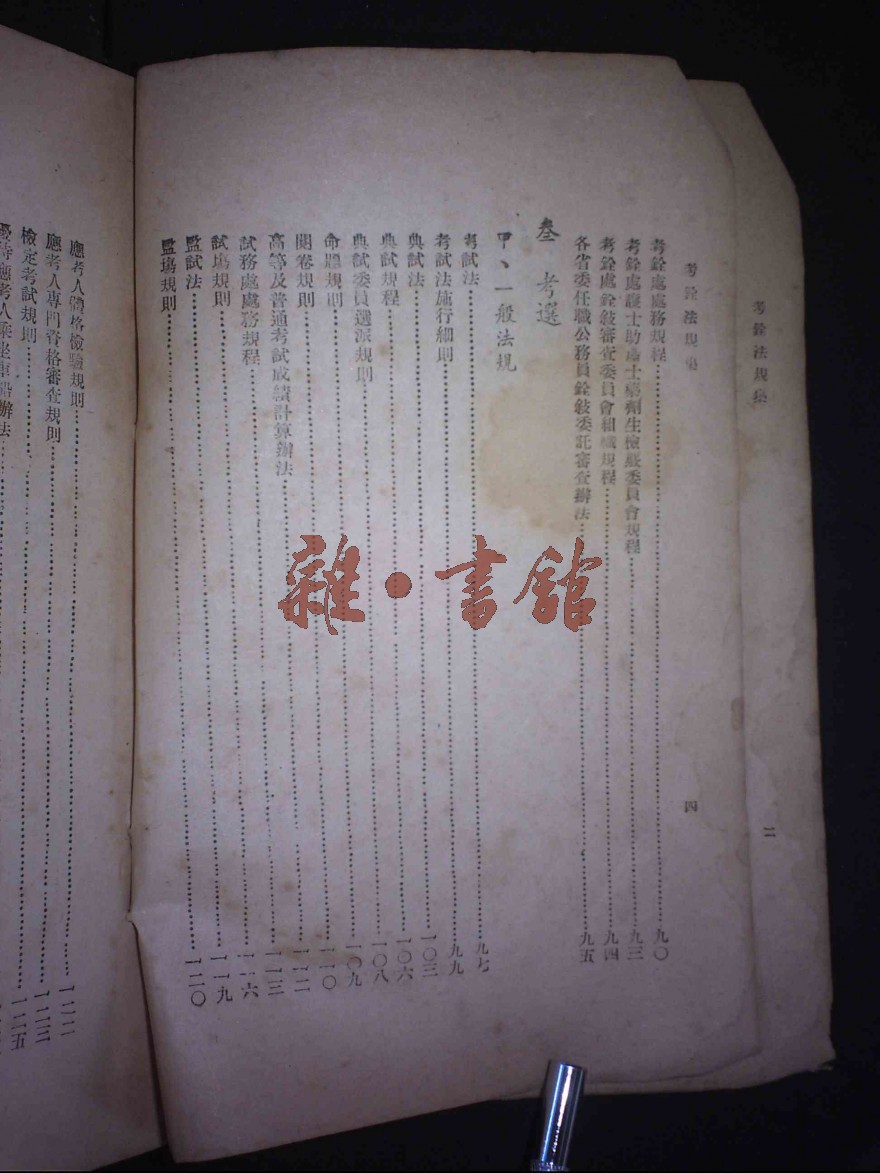 考銓法規集
二
考銓法規集
四
考銓處處務規程……九〇
考銓處護士助產士藥劑生檢覈委員會規程……九三
考銓處銓敍審查委員會組織規程……九四
各省委任職公務員銓敍委託審查辦法……九五
叁 考選
甲、一般法規
考試法……九七
考試法施行細則……九九
典試法……一〇三
典試規程……一〇六
典試委員選派規則……一〇八
命題規則……一〇九
閱卷規則……一一〇
高等及普通考試成績計算辦法……一一二
試務處處務規程……一一三
試場規則……一一六
監試法……一一九
監場規則……一二〇
應考人體格檢驗規則……一二二
應考人專門資格審查規則……一二三
檢定考試規則……一二五
應考人乘坐車船辦法
雜·書館